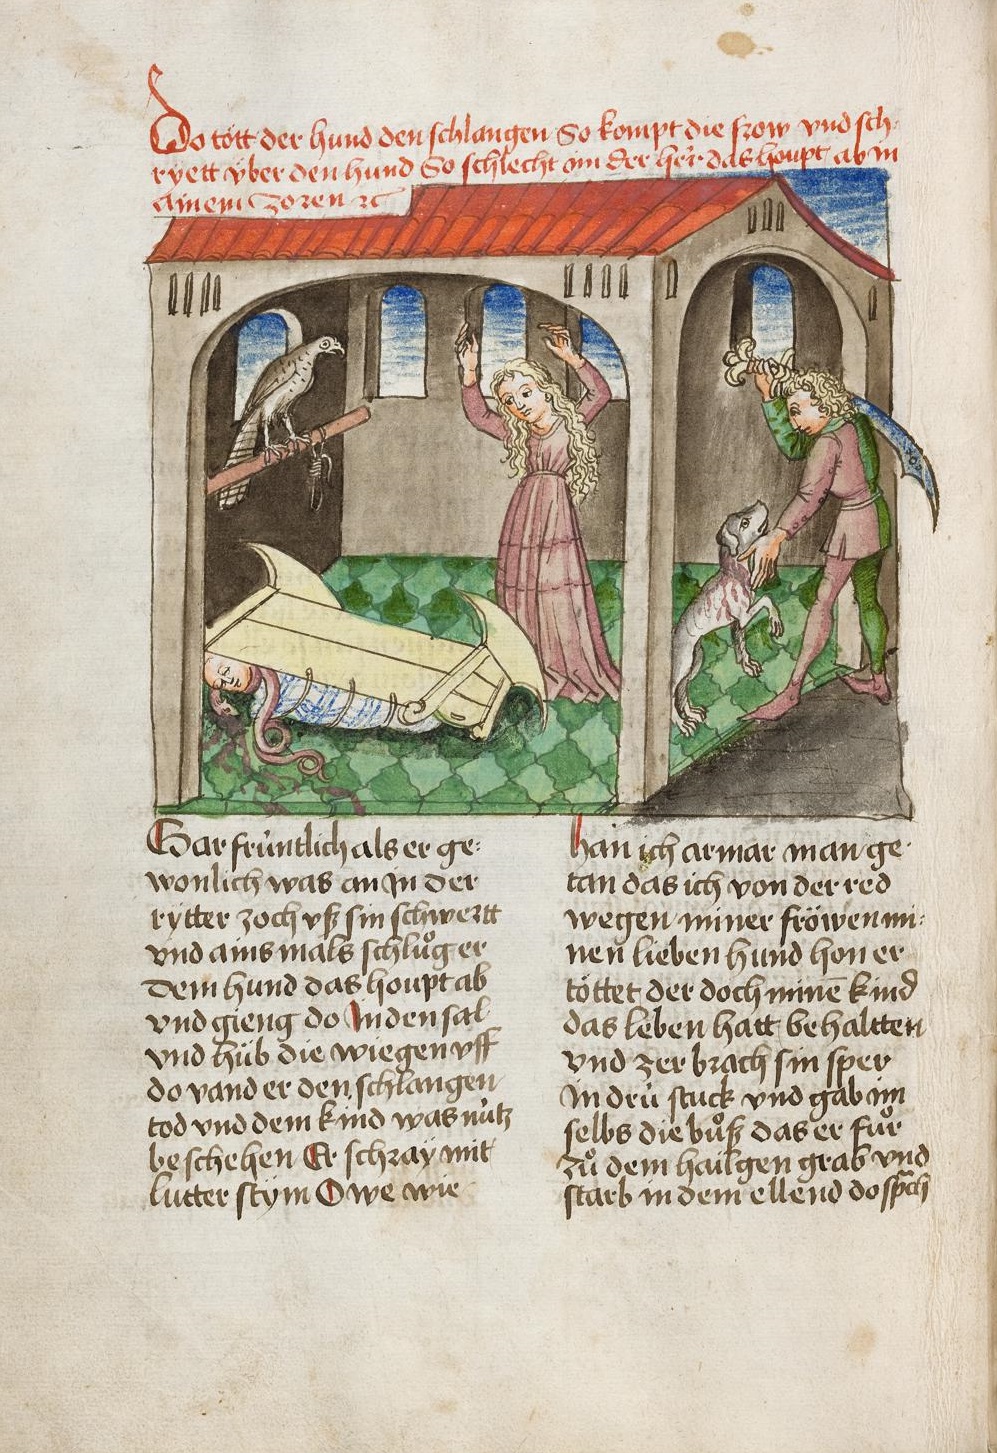 Do tött der hund den schlangen So kompt die frow vnd sch-
ryett vber den hund So schlecht im der her das houpt ab in
ainem zoren ꝛc
Gar früntlich als er ge=
wonlich was an In der
rytter zoch vß sin schwertt
vnd ains mals schluͦg er
dem hund das houpt ab
vnd gieng do In den sal
vnd huͤb die wiegen vff
do vand er den schlangen
tod vnd dem kind was nütz
beschehen Er schray mit
lutter stym O we wie
han ich armar man ge-
tan das ich von der red
wegen miner fröwen mi=
nen lieben hund hon er
töttet der doch minē kind
das leben hatt behaltten
vnd zer brach sin sper
In drü stuck vnd gab im
selbs die buͦß das er fuͦr
zuͦ dem hailgen grab vnd
starb in dem ellend do spͣch